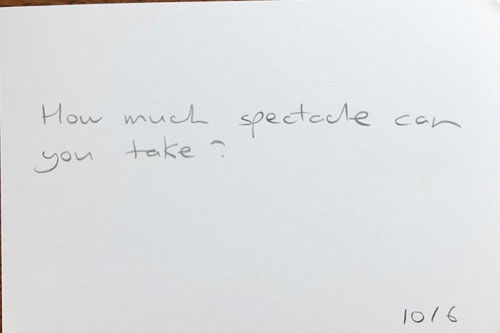 How much spectacle can
you take?
10/6